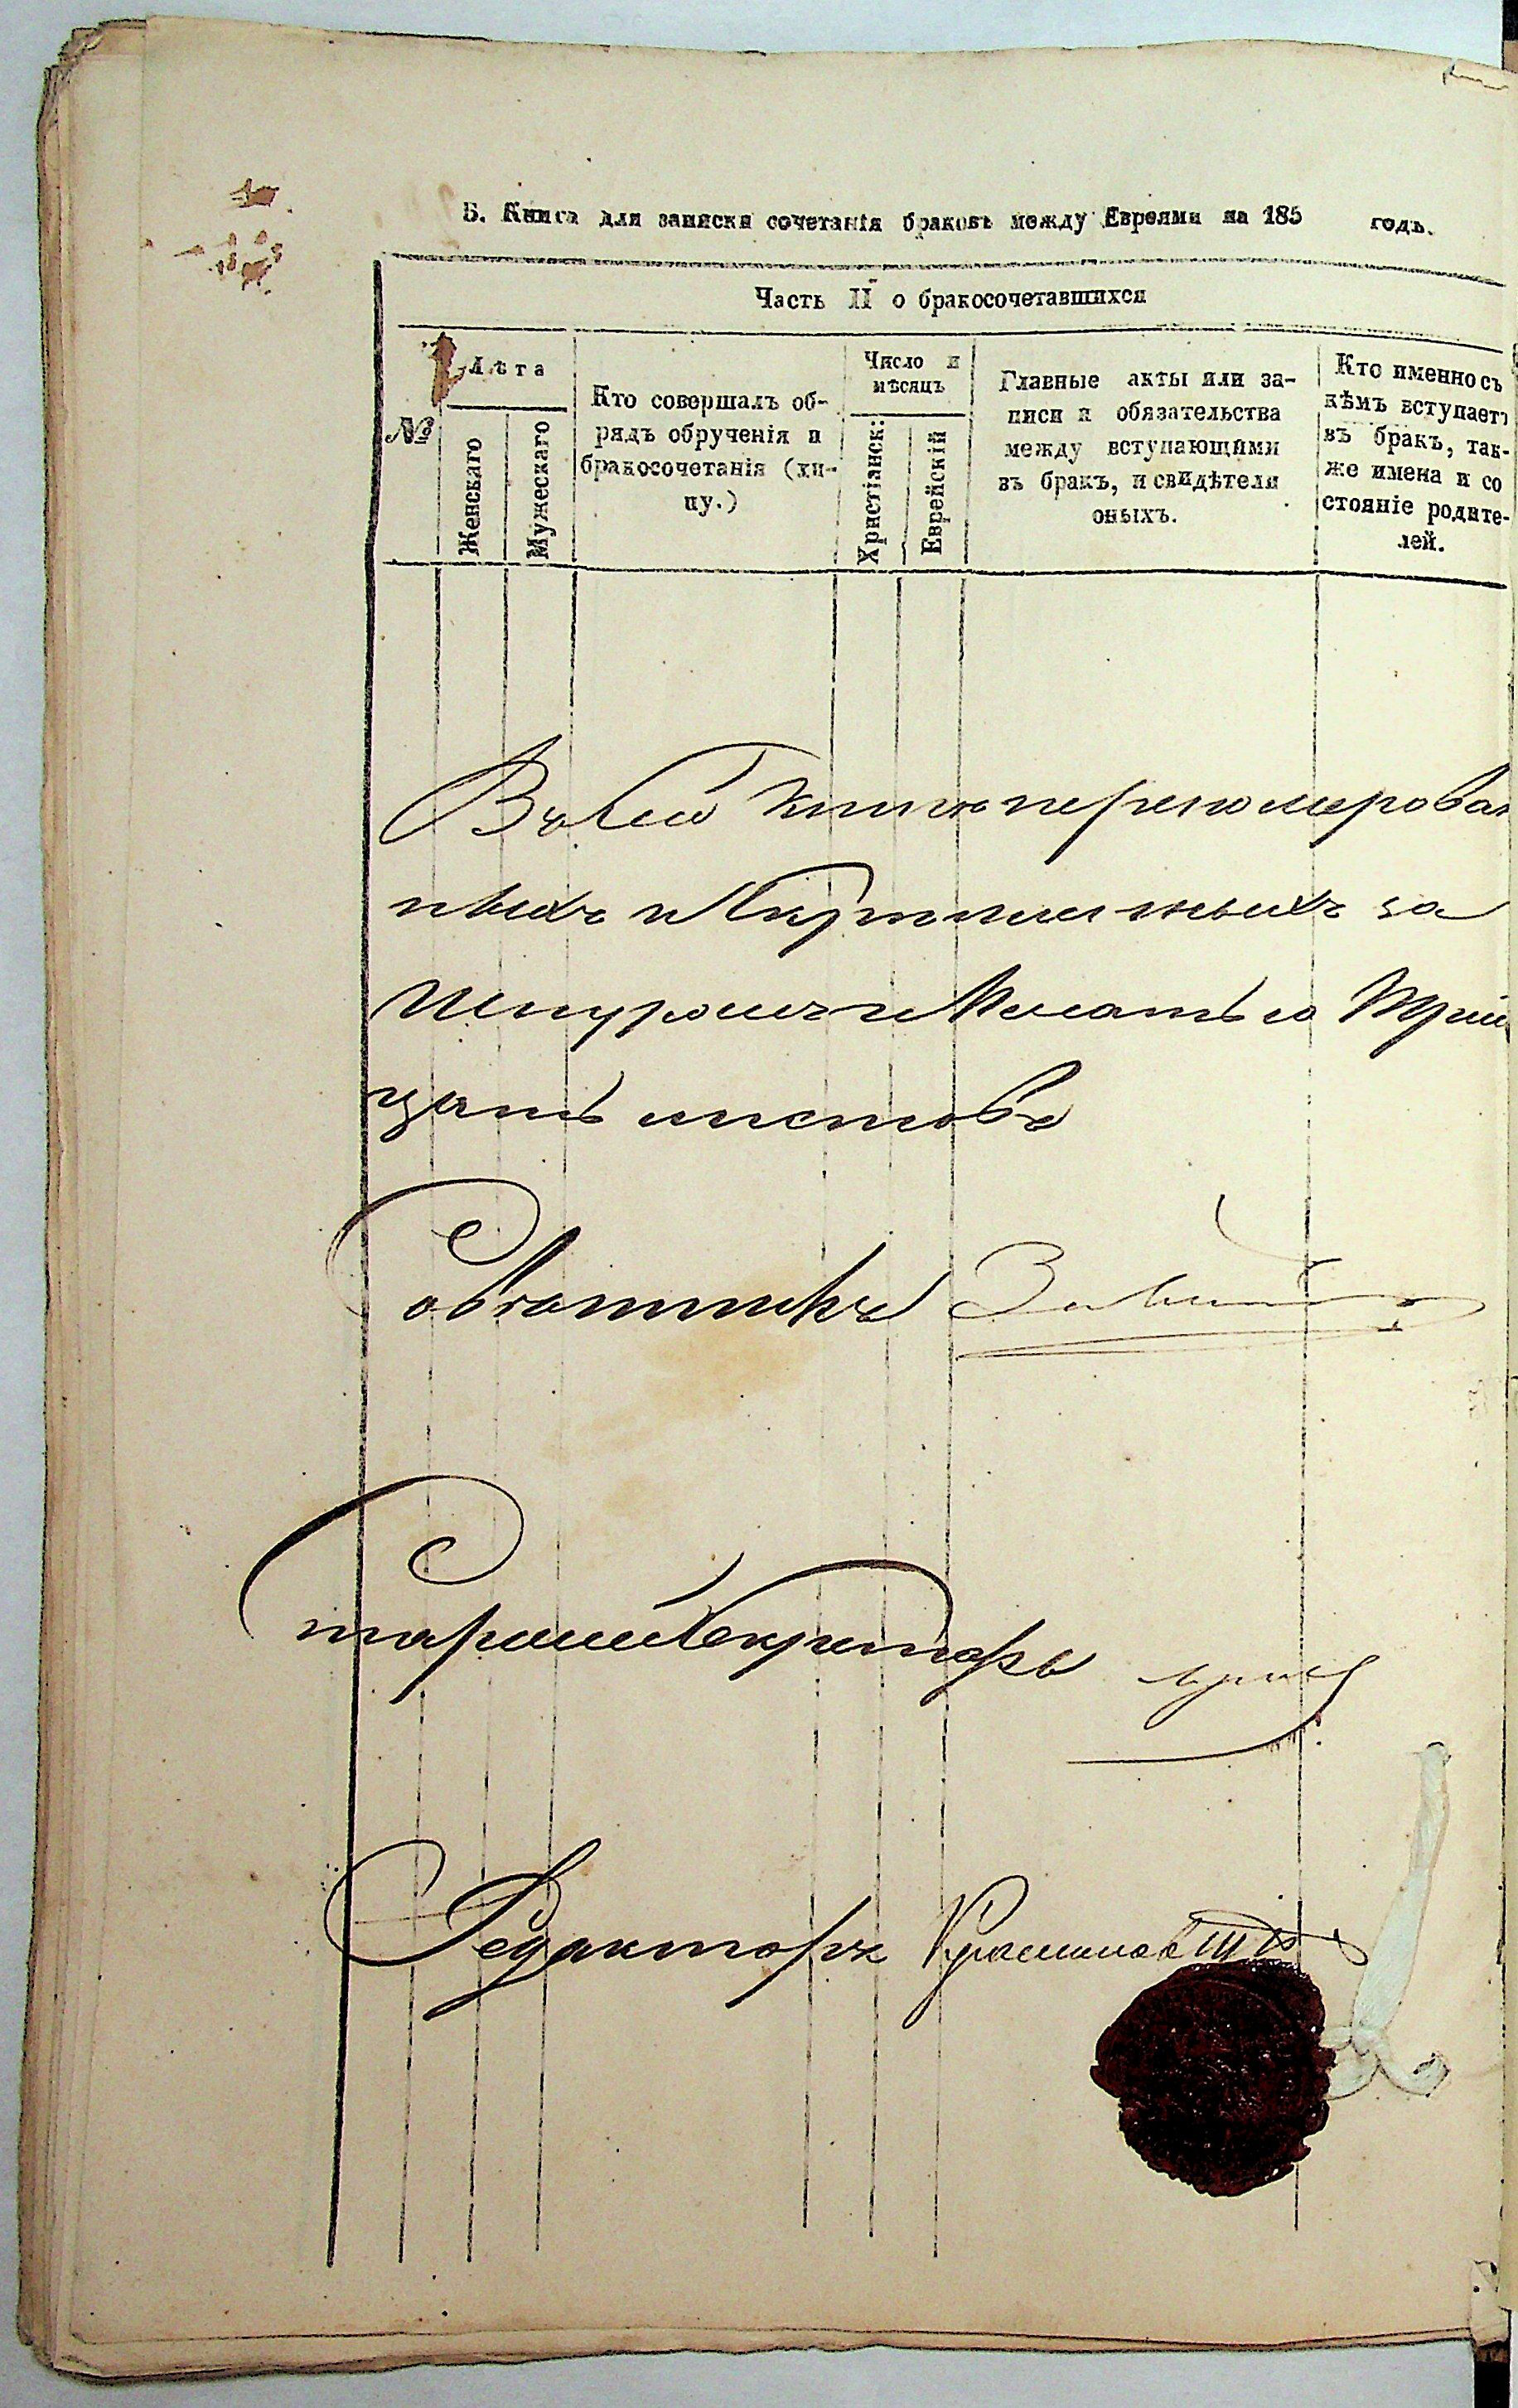 Б. Книга для записки сочетанія браковъ между Евреями на 185 годъ.
Часть II о бракосочетавшихся
№
Лѣта
Женскаго
Мужескаго
Кто совершалъ об-
рядъ обрученія и
бракосочетанія (хи-
пу.)
Число и
мѣсяцъ
Христіанск:
Еврейскій
Главные акты или за-
писи и обязательства
между вступающими
въ бракъ, и свидѣтели
оныхъ.
Кто именно съ
кѣмъ вступаетъ
въ бракъ, так-
же имена и со
стояніе родите-
лей.
Въ сей книгѣ перенумерован
ныхъ и скрѣпленныхъ за
Шнуромъ и Печатью Трид
цать листовъ
Совѣтникъ
Старшій Секретарь
Редакторъ